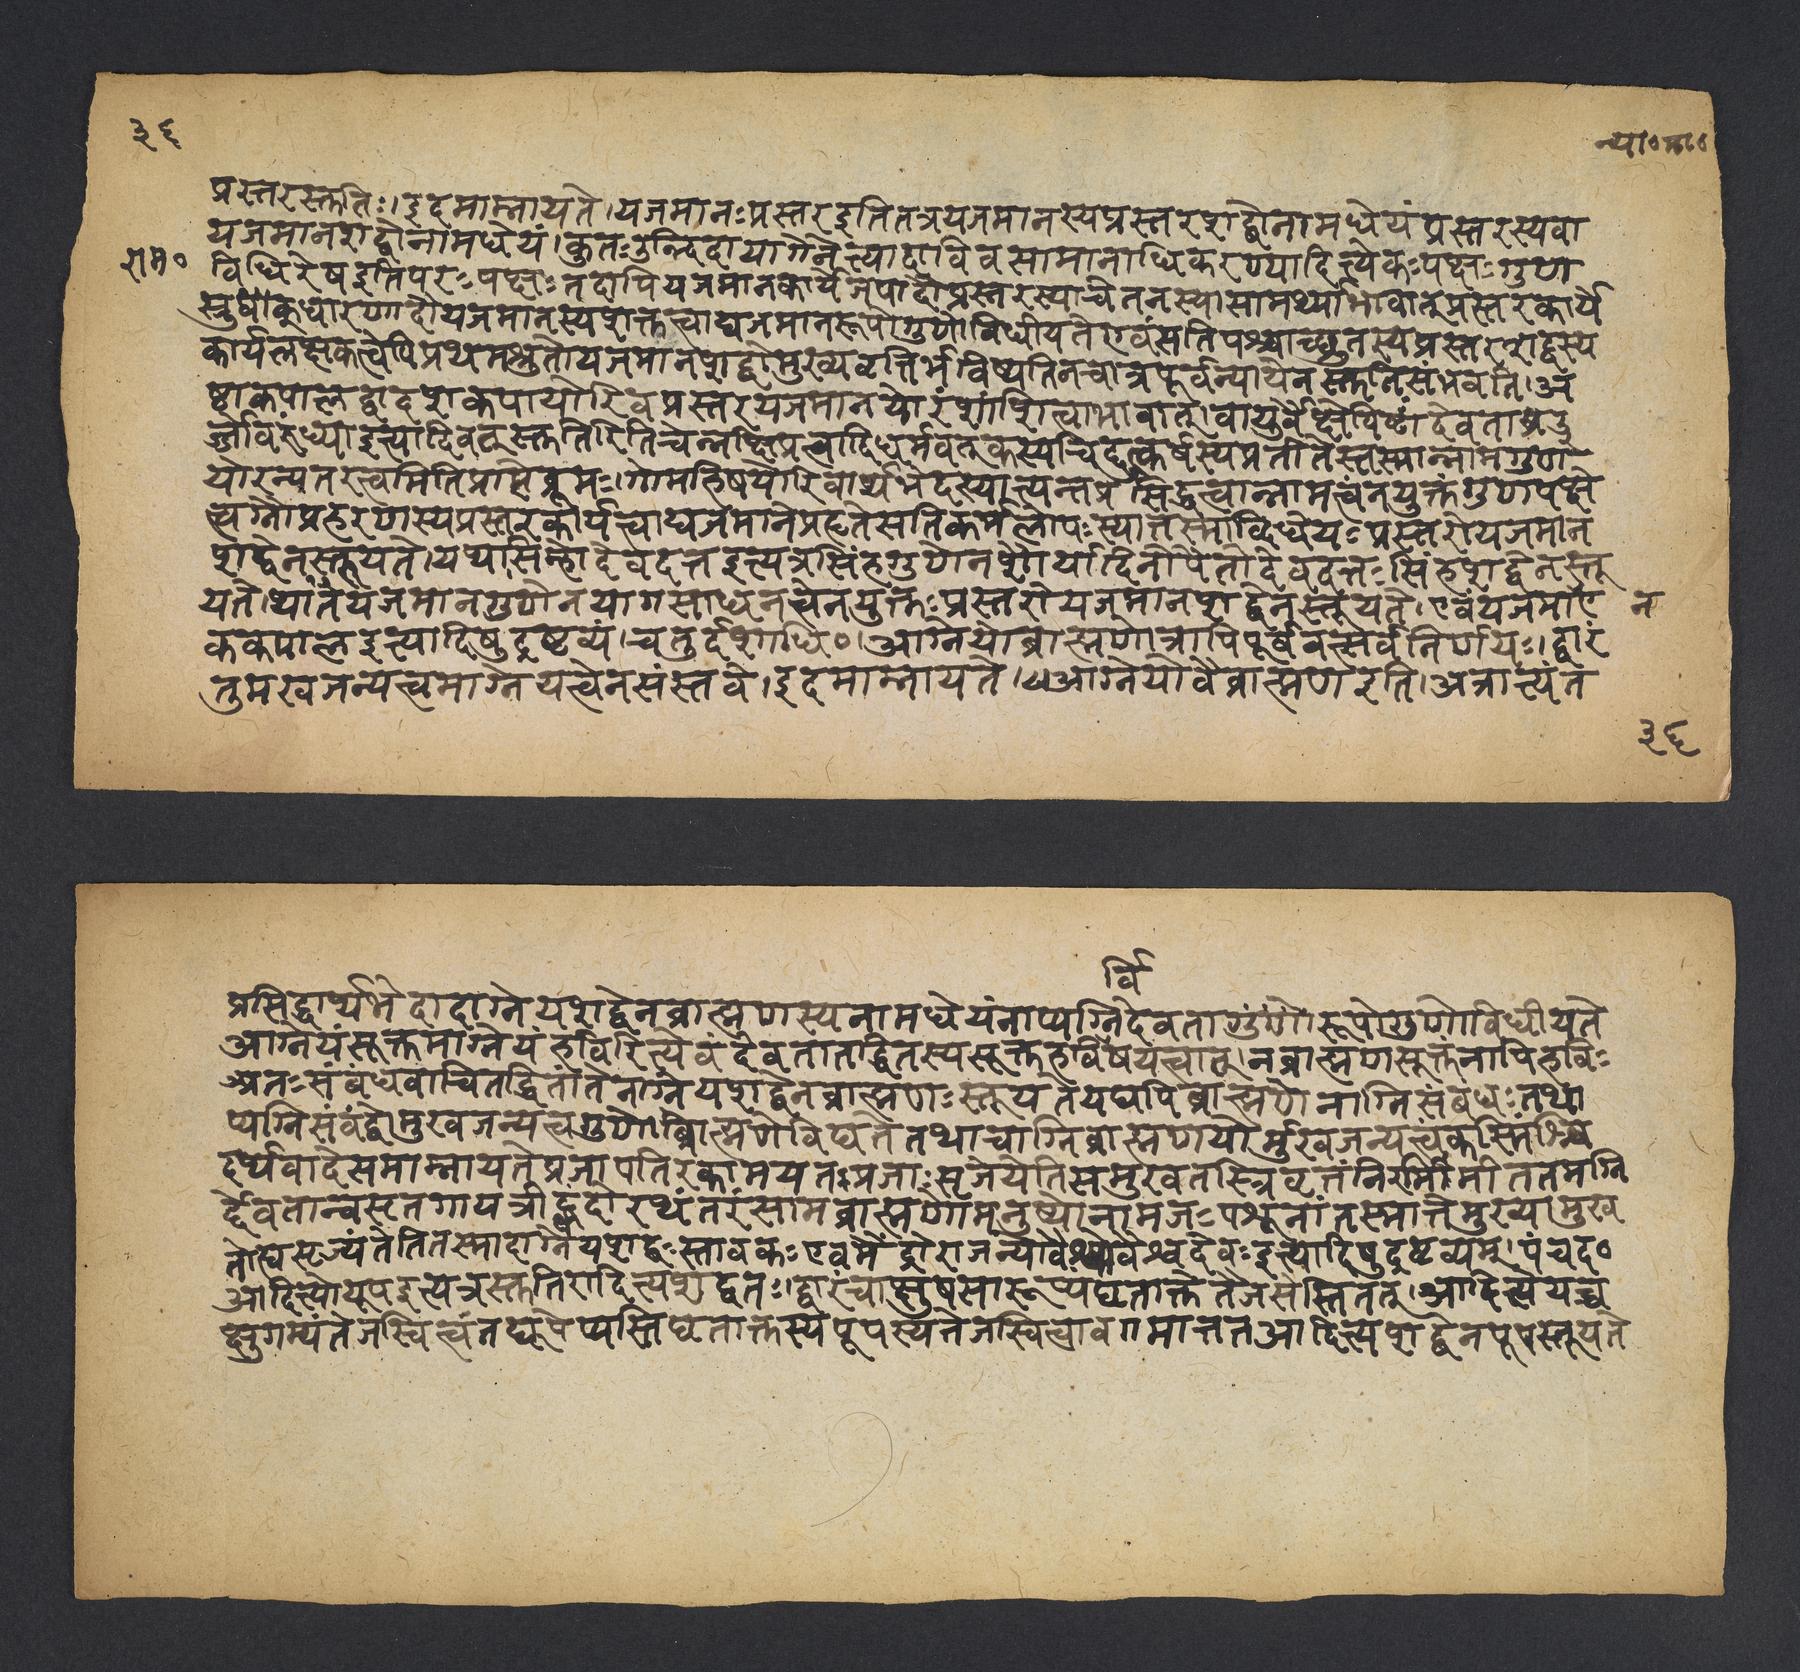 ३६
न्या॰मा॰
प्रस्तरस्तुतिः।इदमाम्नायते।यजमानःप्रस्तरइतितत्रयजमानस्यप्रस्तरशब्दोनामधेयंप्रस्तरस्यवा
यजमानशब्दोनामधेयं।कुतःउद्भिदायागेनेत्यादाविवसामानाधिकरण्यादित्येकःपक्षःगुण
राम॰
विधिरेषइतिपरःपक्षःतदापियजमानकार्येजपादौप्रस्तरस्याचेतनस्यासामर्थ्याभावात्प्रस्तरकार्ये
स्रुग्धारणादौयजमानस्यशक्तत्वाद्यजमानरूपोगुणोविधीयतेएवंसतिपश्चाच्छ्रुतस्यप्रस्तरशब्दस्य
कार्यलक्षकत्वेपिप्रथमश्रुतोयजमानशब्दोमुख्यवृत्तिर्भविष्यतिनचात्रपूर्वन्यायेनस्तुतिसंभवति।अ
ष्टाकपालद्वादशकपायोरिवप्रस्तरयजमानयोरंशांशित्वाभावात्।वायुर्वैक्षेपिष्टादेवताप्रउ
र्जोवरुंध्याइत्यादिवत्स्तुतिरितिचेन्नक्षिप्रत्वादिधर्मवत्कस्यचिदुत्कर्षस्यप्रतीतेस्तस्मान्नामगुण
योरन्यतरत्वमितिप्राप्तेब्रूमः।गोमहिषयोरिवार्थभेदस्यात्यन्तप्रसिद्धत्वान्नामत्वंनयुक्तंगुणपक्षे
त्वग्नौप्रहरणस्यप्रस्तरकार्यत्वाद्यजमानेप्रहृतेसतिकर्मलोपःस्यात्तस्माद्विधेयःप्रस्तरोयजमान
शब्देनस्तूयते।यथासिंहोदेवदत्तइत्यत्रसिंहगुणेनशौर्यादिनोपेतोदेवदत्तःसिंहशब्देनस्तू
यते।थातंयजमानगुणेनयागसाधनत्वेनयुक्तःप्रस्तरोयजमानशब्देनस्तूयते।एवंयजमाए न
ककपालइत्यादिषुद्रष्टव्यं।चतुर्दशाधि॰।आग्नेयोब्राह्मणोत्रापिपूर्ववत्सर्वनिर्णयः।द्वारं
तुमुखजन्यत्वमाग्नेयत्वेनसंस्तवे।इदमाम्नायते।आग्नेयोवैब्राह्मणइति।अत्रात्यंत
३६
र्वि
प्रसिद्धार्थभेदादाग्नेयशब्देनब्राह्मणस्यनामधेयंनाप्यग्निदेवतागुणोरूपोगुणोविधीयते
आग्नेयंसूक्तमाग्नेयंहविरित्येवंदेवतातद्धितस्यसूक्तहविर्विषयत्वात्।नब्राह्मणसूक्तंनापिहविः
अतःसंबंधवाचितद्धितांतेनाग्नेयशब्देनब्राह्मणःस्तूयतेयद्यपिब्राह्मणेनाग्निसंबंधःतथा
प्यग्निसंबंद्धोमुखजन्यत्वगुणोब्राह्मणेविद्यतेतथाचाग्निब्राह्मणयोर्मुखजन्यत्वंकस्मिंश्चि
दर्थवादेसमाम्नायतेप्रजापतिरकामयतप्रजाःसृजेयेतिसमुखतस्त्रिवृतंनिरमिमीततमग्नि
र्देवतान्वसृतगायत्रीछंदोरथंतरंसामब्राह्मणोमनुष्याणामजःपशूनांतस्मात्तेमुख्यामुख
तोह्यसृज्यंतेतितस्मादाग्नेयशब्दःस्तावकःएवमैंद्रोराजन्योवैश्योवैश्वदेवःइत्यादिषुद्रष्टव्यम्।पंचद॰
आदित्योयूपइत्यत्रस्तुतिरादित्यशब्दतः।द्वारंचाक्षुषसारूप्यंघृताक्तेतेजसेस्तितत्।आदित्येयच्च
क्षुगम्यंतेजस्वित्वंतद्यूपेप्यस्तिघृताक्तस्ययूपस्यतेजस्वित्वावगमात्ततआदित्यशब्देनयूपस्तूयते